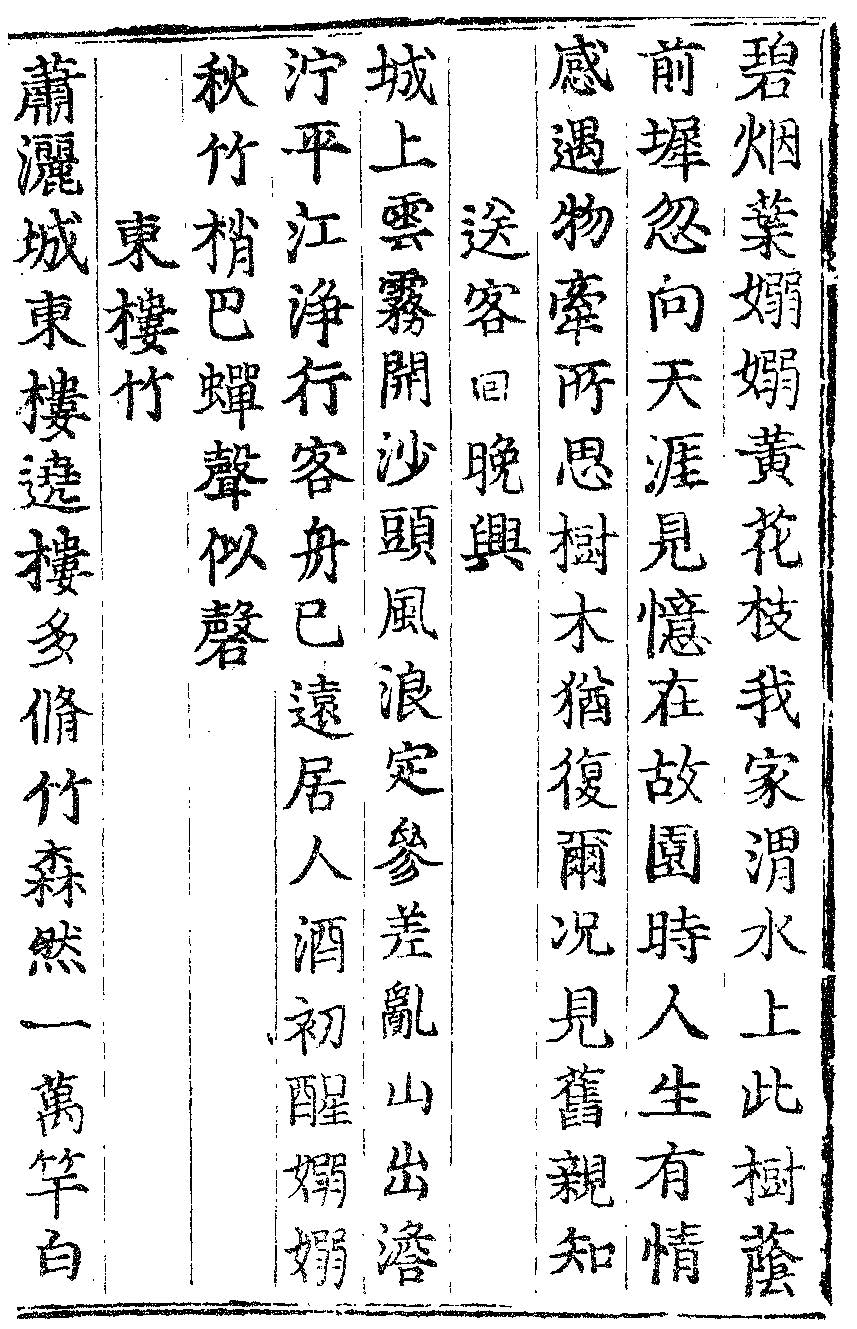 碧烟葉嫋嫋黃花枝我家渭水上此樹蔭
前墀忽向天涯見憶在故園時人生有情
感遇物牽所思樹木猶復爾况見舊親知
送客回晚興
城上雲霧開沙頭風浪定參差亂山出澹
泞平江浄行客舟已遠居人酒初醒嫋嫋
秋竹梢巴蟬聲似磬
東樓竹
蕭灑城東樓遶樓多脩竹森然一萬竿白